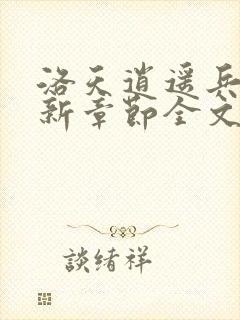 洛天逍遥兵
新章节全文
谈绪祥